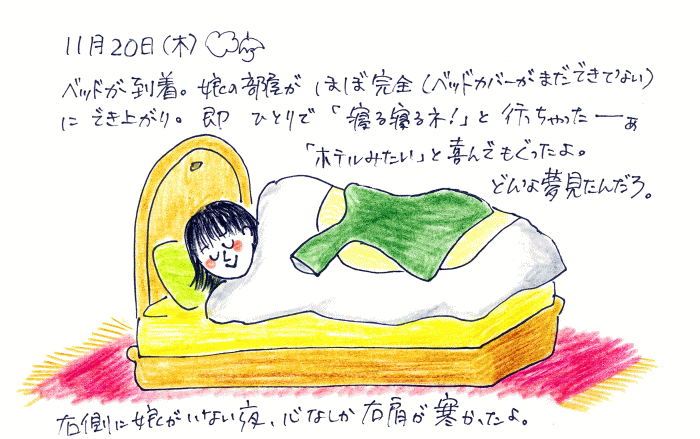 11月20日(木)
ベッドが到着。娘の部屋が ほぼ完全(ベッドカバーがまだできてない)
に でき上がり。即 ひとりで「寝る寝るネ!」と 行っちゃったーぁ
「ホテルみたい」と喜んでもぐったよ。
どんな夢見たんだろ。
右側に娘がいない夜、心なしか 右肩が 寒かったよ。